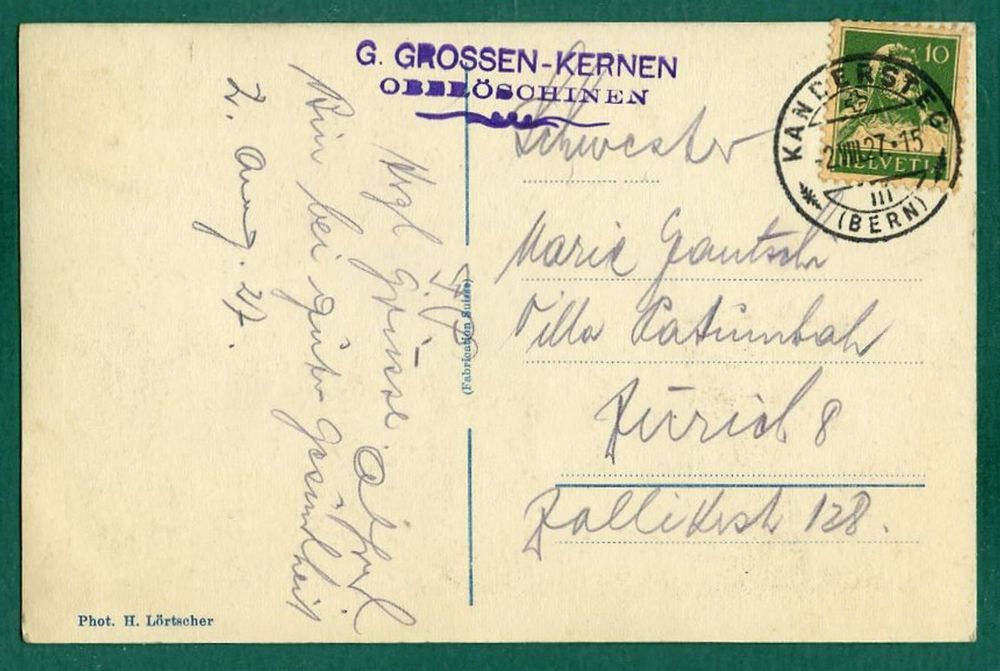 G. GROSSEN-KERNEN
OBERÖSCHINEN
10
HELVETIA
KANDERSTEG
-2.VIII.27.-15
III
(BERN)
2. Aug. 27.
Bin bei guter Gesundheit
Hrzl Grüsse
Schwester
Marie Gautschi
Villa Patumbah
Zürich 8
Zollikerst 128.
(Fabrication Suisse)
Phot. H. Lörtscher